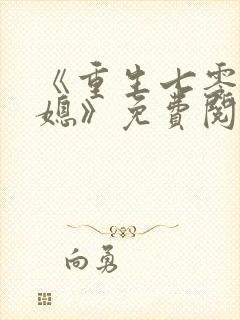 《重生七零
媳》免費閱
向勇